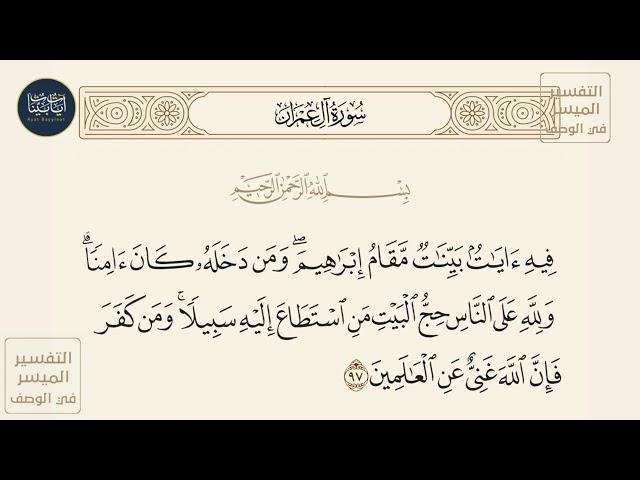 آيات بينات
Ayat Bayyinat
سُورَةُ آلِ عِمْرَان
التفسير
الميسر
في الوصف
بِسْمِ ٱللَّهِ ٱلرَّحْمَٰنِ ٱلرَّحِيمِ
فِيهِ ءَايَٰتُۢ بَيِّنَٰتٞ مَّقَامُ إِبۡرَٰهِيمَۖ وَمَن دَخَلَهُۥ كَانَ ءَامِنٗاۗ
وَلِلَّهِ عَلَى ٱلنَّاسِ حِجُّ ٱلۡبَيۡتِ مَنِ ٱسۡتَطَاعَ إِلَيۡهِ سَبِيلٗاۚ وَمَن كَفَرَ
فَإِنَّ ٱللَّهَ غَنِيٌّ عَنِ ٱلۡعَٰلَمِينَ ٩٧
التفسير
الميسر
في الوصف